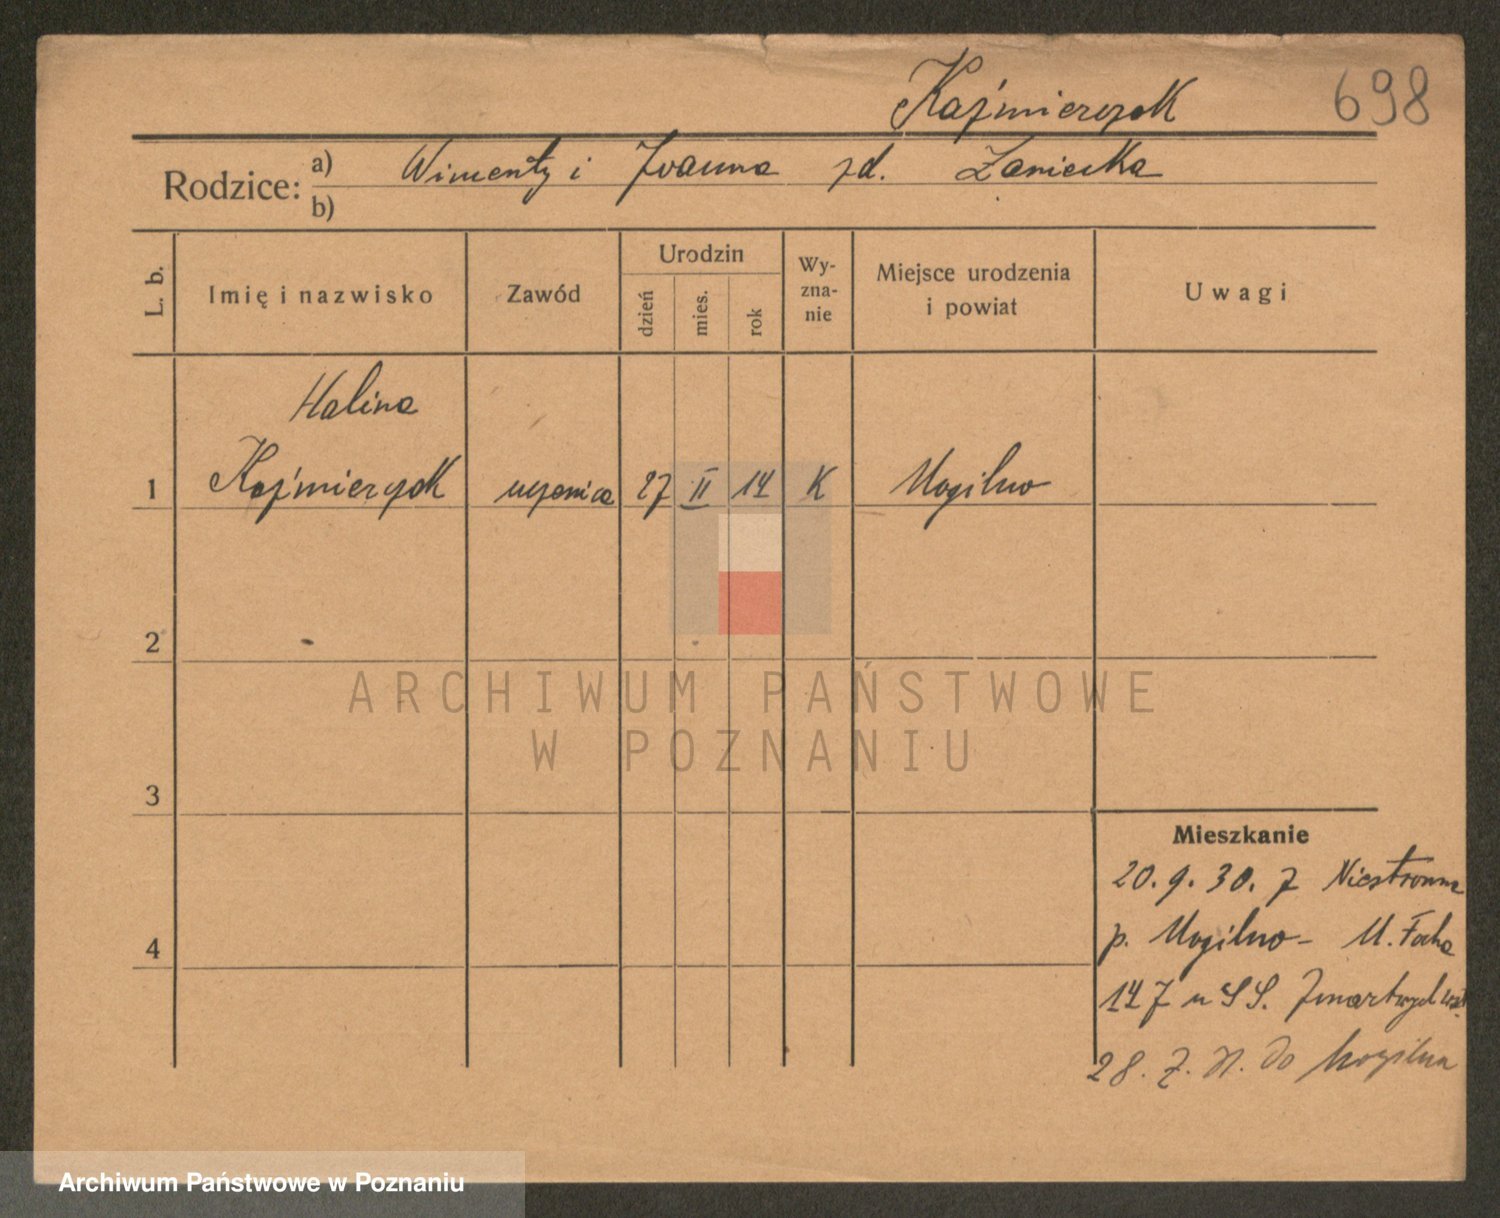 Kaźmierczak 698
Rodzice: a) Wincenty i Joanna zd. Zaniecka
b)
L. b.
Imię i nazwisko
Zawód
Urodzin
dzień
mies.
rok
Wy-
zna-
nie
Miejsce urodzenia
i powiat
Uwagi
Halina
1 Kaźmierczak uczenica 27 II 14 K Mogilno
2
3
4
Mieszkanie
20. 9. 30. z Niestronna
p. Mogilno - M. Focha
147 u SS. Zmartwychwst.
28. do Mogilna
ARCHIWUM PAŃSTWOWE
W POZNANIU
Archiwum Państwowe w Poznaniu